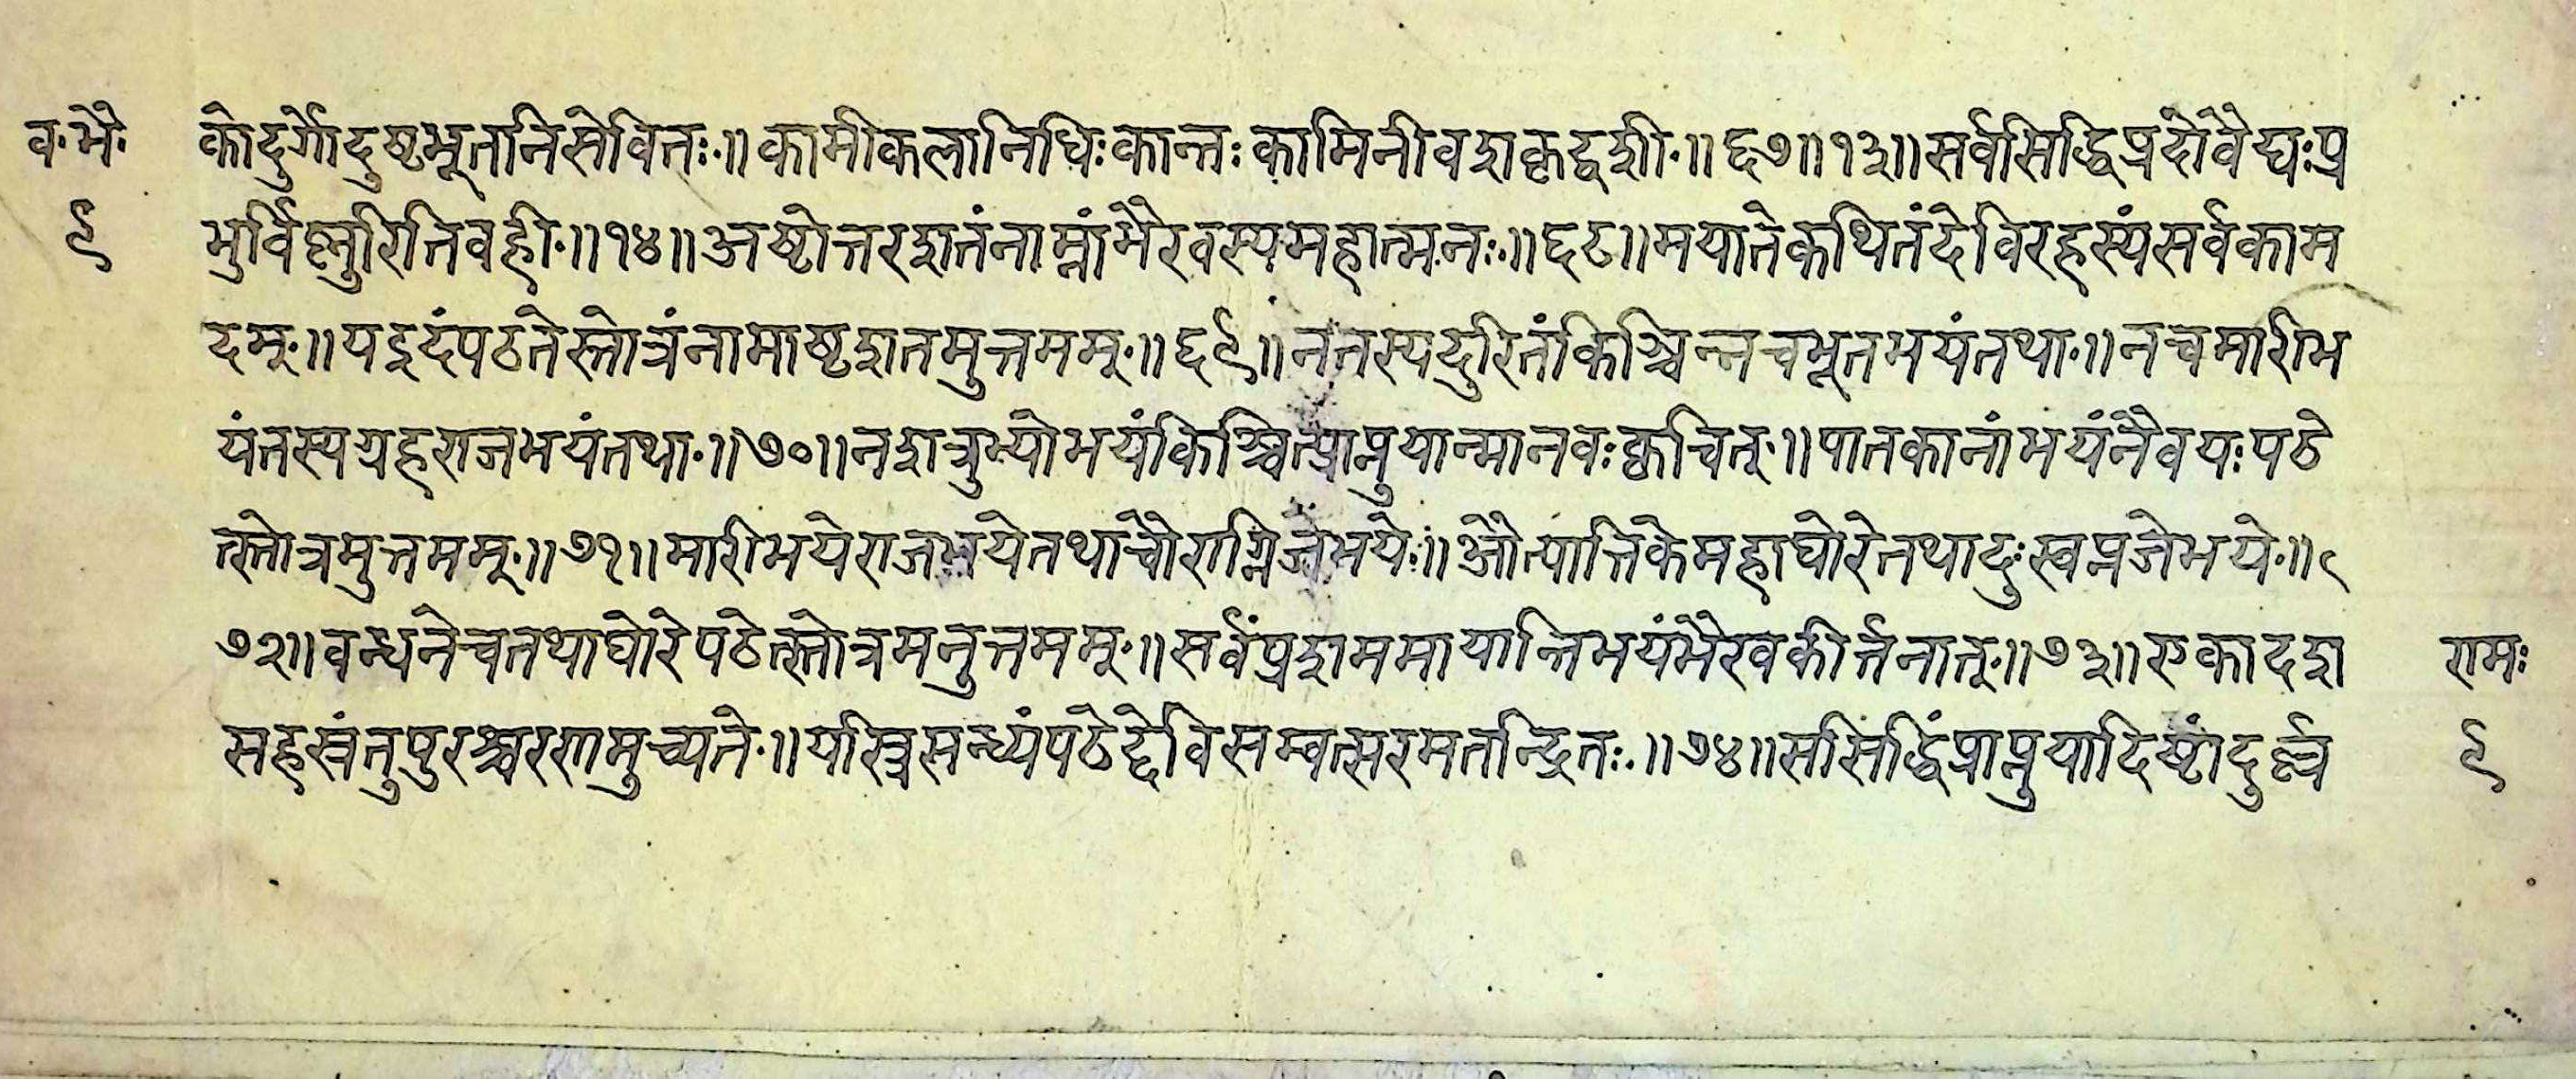 व॰भै॰
९
कोदुर्गोदुष्टभूतनिसेवितः॥कामीकलानिधिःकान्तःकामिनीवशकृद्वशी॥६७॥१३॥सर्वसिद्धिप्रदोवैद्यःप्र
भुर्विष्णुरितिवही॥१४॥अष्टोत्तरशतंनाम्नांभैरवस्यमहात्मनः॥६८॥मयातेकथितंदेविरहस्यंसर्वकाम
दम्॥यइदंपठतेस्तोत्रंनामाष्टशतमुत्तमम्॥६९॥नतस्यदुरितंकिञ्चिन्नचभूतभयंतथा॥नचमारीभ
यंतस्यग्रहराजभयंतथा॥७०॥नशत्रुभ्योभयंकिञ्चित्प्राप्नुयान्मानवःक्वचित्॥पातकानांभयंनैवयःपठे
त्स्तोत्रमुत्तमम्॥७१॥मारीभयेराजभयेतथाचौराग्निजेभये॥औत्पात्तिकेमहाघोरेतथादुःस्वप्नजेभये॥
७२॥वन्धनेचतथाघोरेपठेत्स्तोत्रमनुत्तमम्॥सर्वंप्रशममायान्तिभयंभैरवकीर्त्तनात्॥७३॥एकादश
सहस्रंतुपुरश्चरणमुच्यते॥यस्त्रिसन्ध्यंपठेद्देविसम्वत्सरमतन्द्रितः॥७४॥ससिद्धिंप्राप्नुयादिष्टांदुर्ल्ल
रामः
९